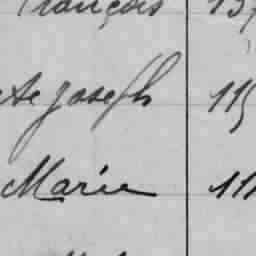 François 137
te Joseph 115
Marie 111